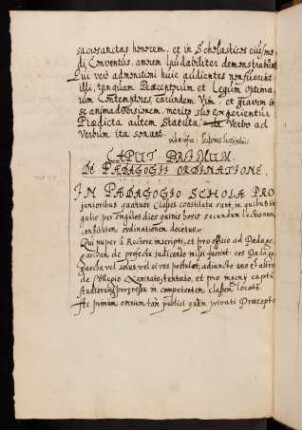 sacrosanctas honorem, et in Scholasticos eiusmo-
di Conventus, amorem laudabiliter demonstrabunt.
Qui verò admonitioni huic audientes non fuerint
illi, tanquam Praeceptorum et Legum optima-
rum Contemptores, earundem Vim, et gravem in
se animadversionem, meritò suo experientur
Praedicta autem Statuta, Verbo ad
Verbum ita sonant.
CAPUT PRIMUM.
DE PAEDAGOGII ORDINATIONE.
IN PAEDAGOGIO SCHOLAE PRO
junioribus quatuor Classes constitutae sunt, in quibus sin-
gulis per singulos dies quinis horis secundum Lectionum
ordinationem docetur.
Qui nuper à Rectore inscripti, et pro officio ad Paedago-
giarcham de profectu judicando missi fuerint: eos Paedago-
giarcha vel solus vel si res postulet, adjuncto uno et altero
de Collegio tentato, et pro
Auditorum progressu in competentem classem locato.
Ac primum omnium tam publici quàm privati Praecepto-